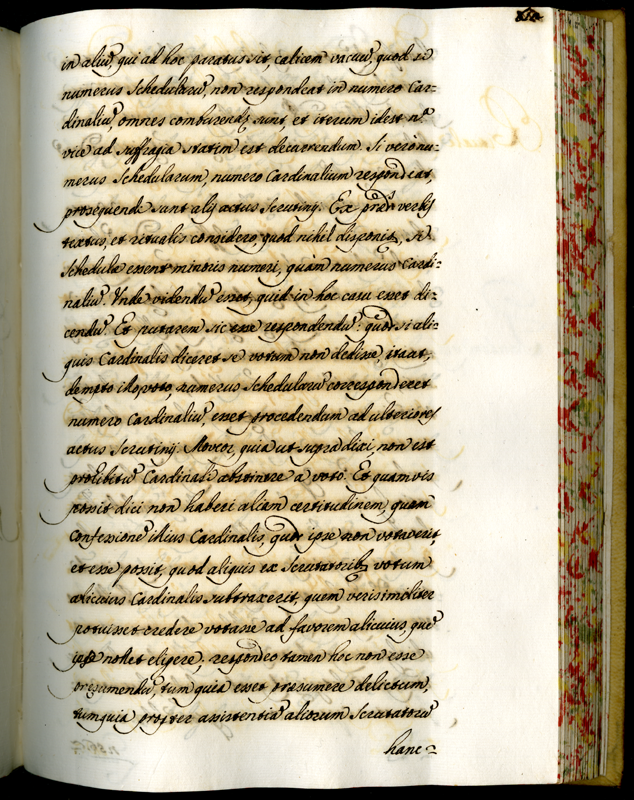 in aliũ, qui ad hoc paratus sit, calicem vacuũ, quod si
numerus Schedularũ, non respondeat in numero Car=
dinaliũ, omnes comburendę sunt, et iterum idest n.ª
vice ad suffragia statim est decurrendum. Si verò nu=
merus Schedularum, numero Cardinalium respondeat,
prosequendi sunt alij actus Scrutinij. Ex pred.s verbis
textus, et ritualis considero, quod nihil disponit, si
Schedulæ essent minoris numeri, quàm numerus Cardi=
naliũ. Unde videndũ esset, quid in hoc casu esset di=
cendũ. Et putarem sic esse respondendũ: quod si ali=
quis Cardinalis diceret se votum non dedisse, ita ut,
dempto illo voto, numerus Schedularũ corresponderet
numero Cardinaliũ, esset procedendum ad ulteriores
actus Scrutinij. Moveor, quia ut supra dixi, non est
prohibitũ Cardinali abstinere a voto. Et quamvis
possit dici non haberi aliam certitudinem, quam
confessionẽ illius Cardinalis, quod ipse non votaverit,
et esse possit, quod aliquis ex Scrutatoribus votum
alicuius Cardinalis subtraxerit, quem verisimiliter
potuisset credere votasse ad favorem alicuius, quẽ
ipse nollet eligere; respondeo tamen hoc non esse
præsumendũ, tum quia esset presumere delictum,
tum quia propter assistentiã aliorum Scrutatorũ
hanc=